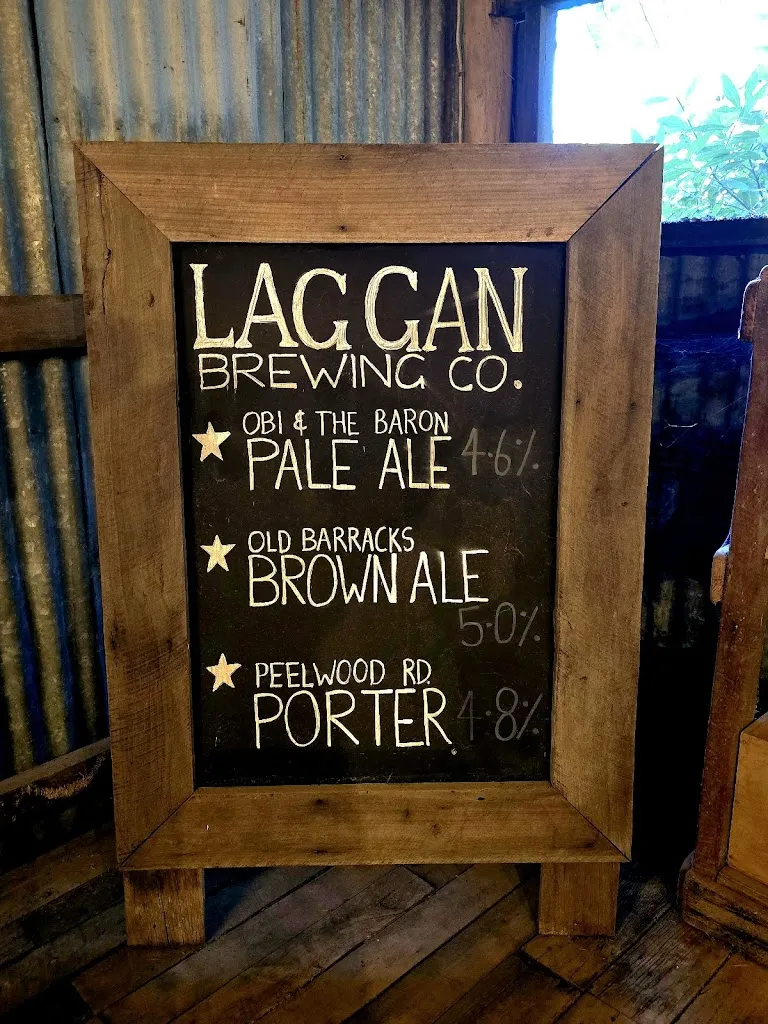 LAGGAN
BREWING CO.
OBI & THE BARON
PALE ALE 4.6%
OLD BARRACKS
BROWN ALE
5.0%
PEELWOOD RD.
PORTER 4.8%